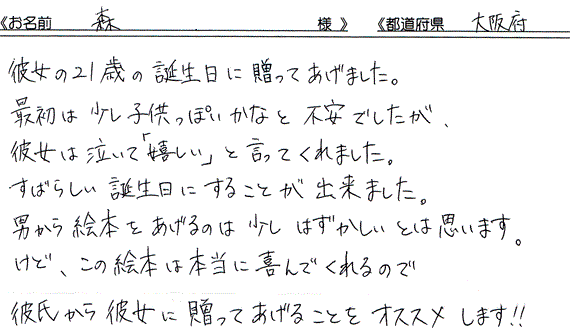 《お名前 森 様》 《都道府県 大阪府
彼女の21歳の誕生日に贈ってあげました。
最初は少し子供っぽいかなと不安でしたが、
彼女は泣いて「嬉しい」と言ってくれました。
すばらしい誕生日にすることが出来ました。
男から絵本をあげるのは少しはずかしいとは思います。
けど、この絵本は本当に喜んでくれるので
彼氏から彼女に贈ってあげることをオススメします!!